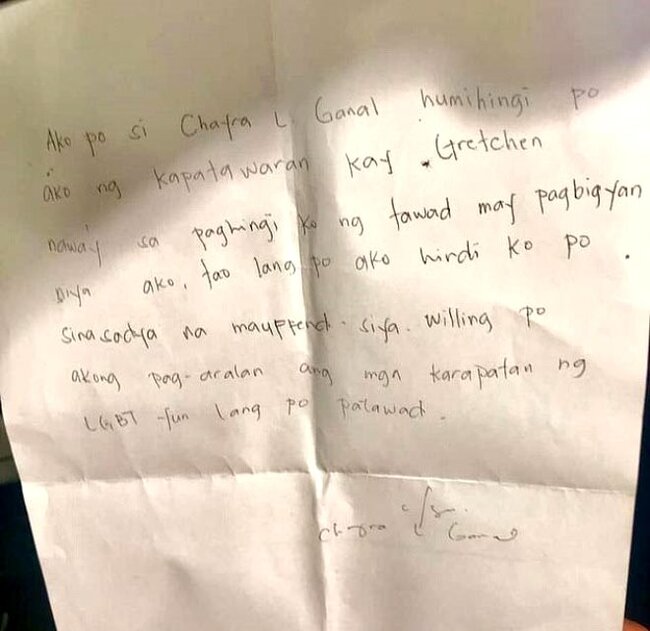 Ako po si Chayra L. Ganal humihingi po
ako ng kapatawaran kay Gretchen
naway sa paghingi ko ng tawad may pagbigyan
niya ako. tao lang po ako hindi ko po
sinasadya na mauffend siya. willing po
akong pag-aralan ang mga karapatan ng
LGBT lang po patawad.
L Ganal